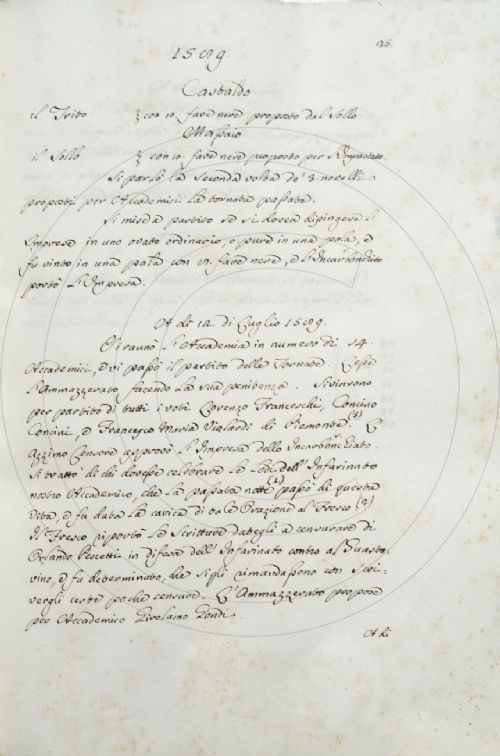 25.
1589.
Castaldo
il Trito 3 con 10 fave nere proposto dal Sollo
Massaio
il Sollo 3 con 10. fave nere proposto per
Si parlò la seconda volta de' 3 novelli
proposti per Accademici la tornata passata.
Si mise a partito se si dovea dipingere l'
Imprese in uno ovato ordinario, o pure in una pala, e
fu vinto in una pala con fave nere, e l'Incarbonchiato
portò l'Impresa.
A dì 12. di Luglio 1589.
Si raunò l'Accademia in numero di 14.
Accademici, e vi passò il partito delle Tornate. Lesse
l'Ammazzerato facendo la sua penitenza. Si vinsono
per partito di tutti i voti Lorenzo Franceschi, Concino
Concini, e Francesco Maria Vialardi di Piemonte. (3) L'
Azzimo Censore approvò l'Impresa dello Incarbonchiato.
Si trattò di chi dovesse celebrare le Lodi dell'Infarinato
nostro Accademico, che la passata notte (1) passò di questa
vita, e fu data la carica di tale Orazione al Fresco. (2)
Il Fresco riportò le Scritture dategli a censurare di
Orlando Pescetti in difesa dell'Infarinato contro al Guasta-
vino, e fu determinato, che si gli rimandassono con scri-
vergli certe poche censure. L'Ammazzerato propose
per Accademico Girolamo
A dì